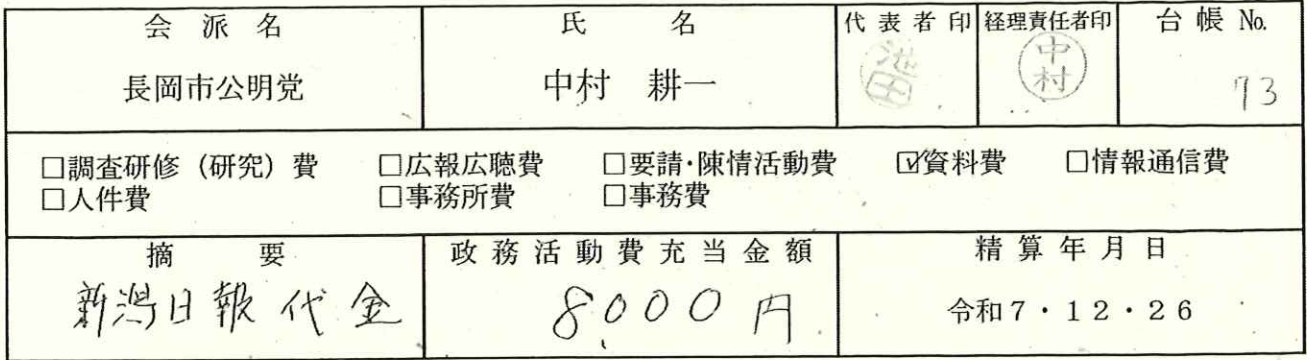 会派名 氏名 代表者印 経理責任者印 台帳No.
長岡市公明党 中村 耕一 中村 73
□調査研修（研究）費 □広報広聴費 □要請・陳情活動費 ☑資料費 □情報通信費
□人件費 □事務所費 □事務費
摘要 政務活動費充当金額 精算年月日
新潟日報代金 8,000円 令和7・12・26